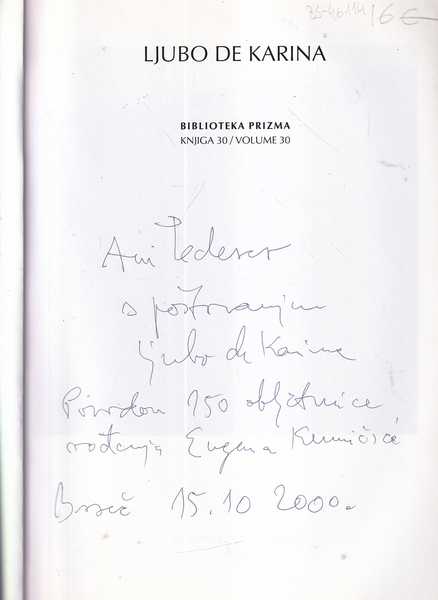 35-46114/6€
LJUBO DE KARINA
BIBLIOTEKA PRIZMA
KNJIGA 30 / VOLUME 30
Ani Lederer
s poštovanjem
Ljubo de Karina
Povodom 150 obljetnice
rođenja Eugena Kumičića
Brseč 15.10 2000.